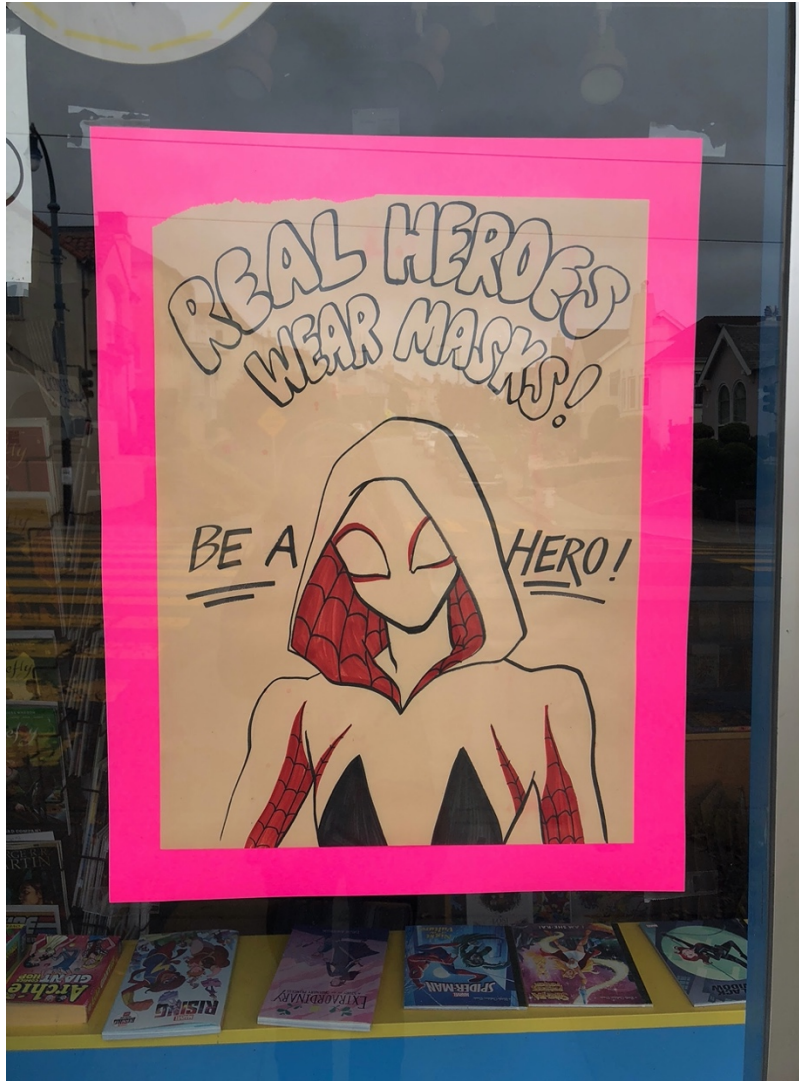 REAL HEROES
WEAR MASKS!
BE A HERO!
Archie
GIANT
RISING
EXTRAORDINARY
SPIDER-MAN